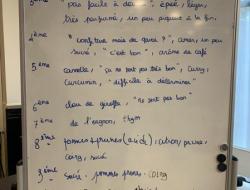 pas facile à deviner - épicé, léger,
très parfumé, un peu piquant à la fin.
4ème " confiture mais de quoi ? ", amer, un peu
sucré, " c'est bon ", arôme de café
5ème cannelle, " ça ne sent pas très bon ", curry,
curcumin, " difficile à déterminer "
6ème clou de girofle, " ne sent pas bon "
7ème de l'origan, thym
8ème pommes + prunes (acide), citron, poires,
coing, sucré
9ème sucré - pommes poires - coing